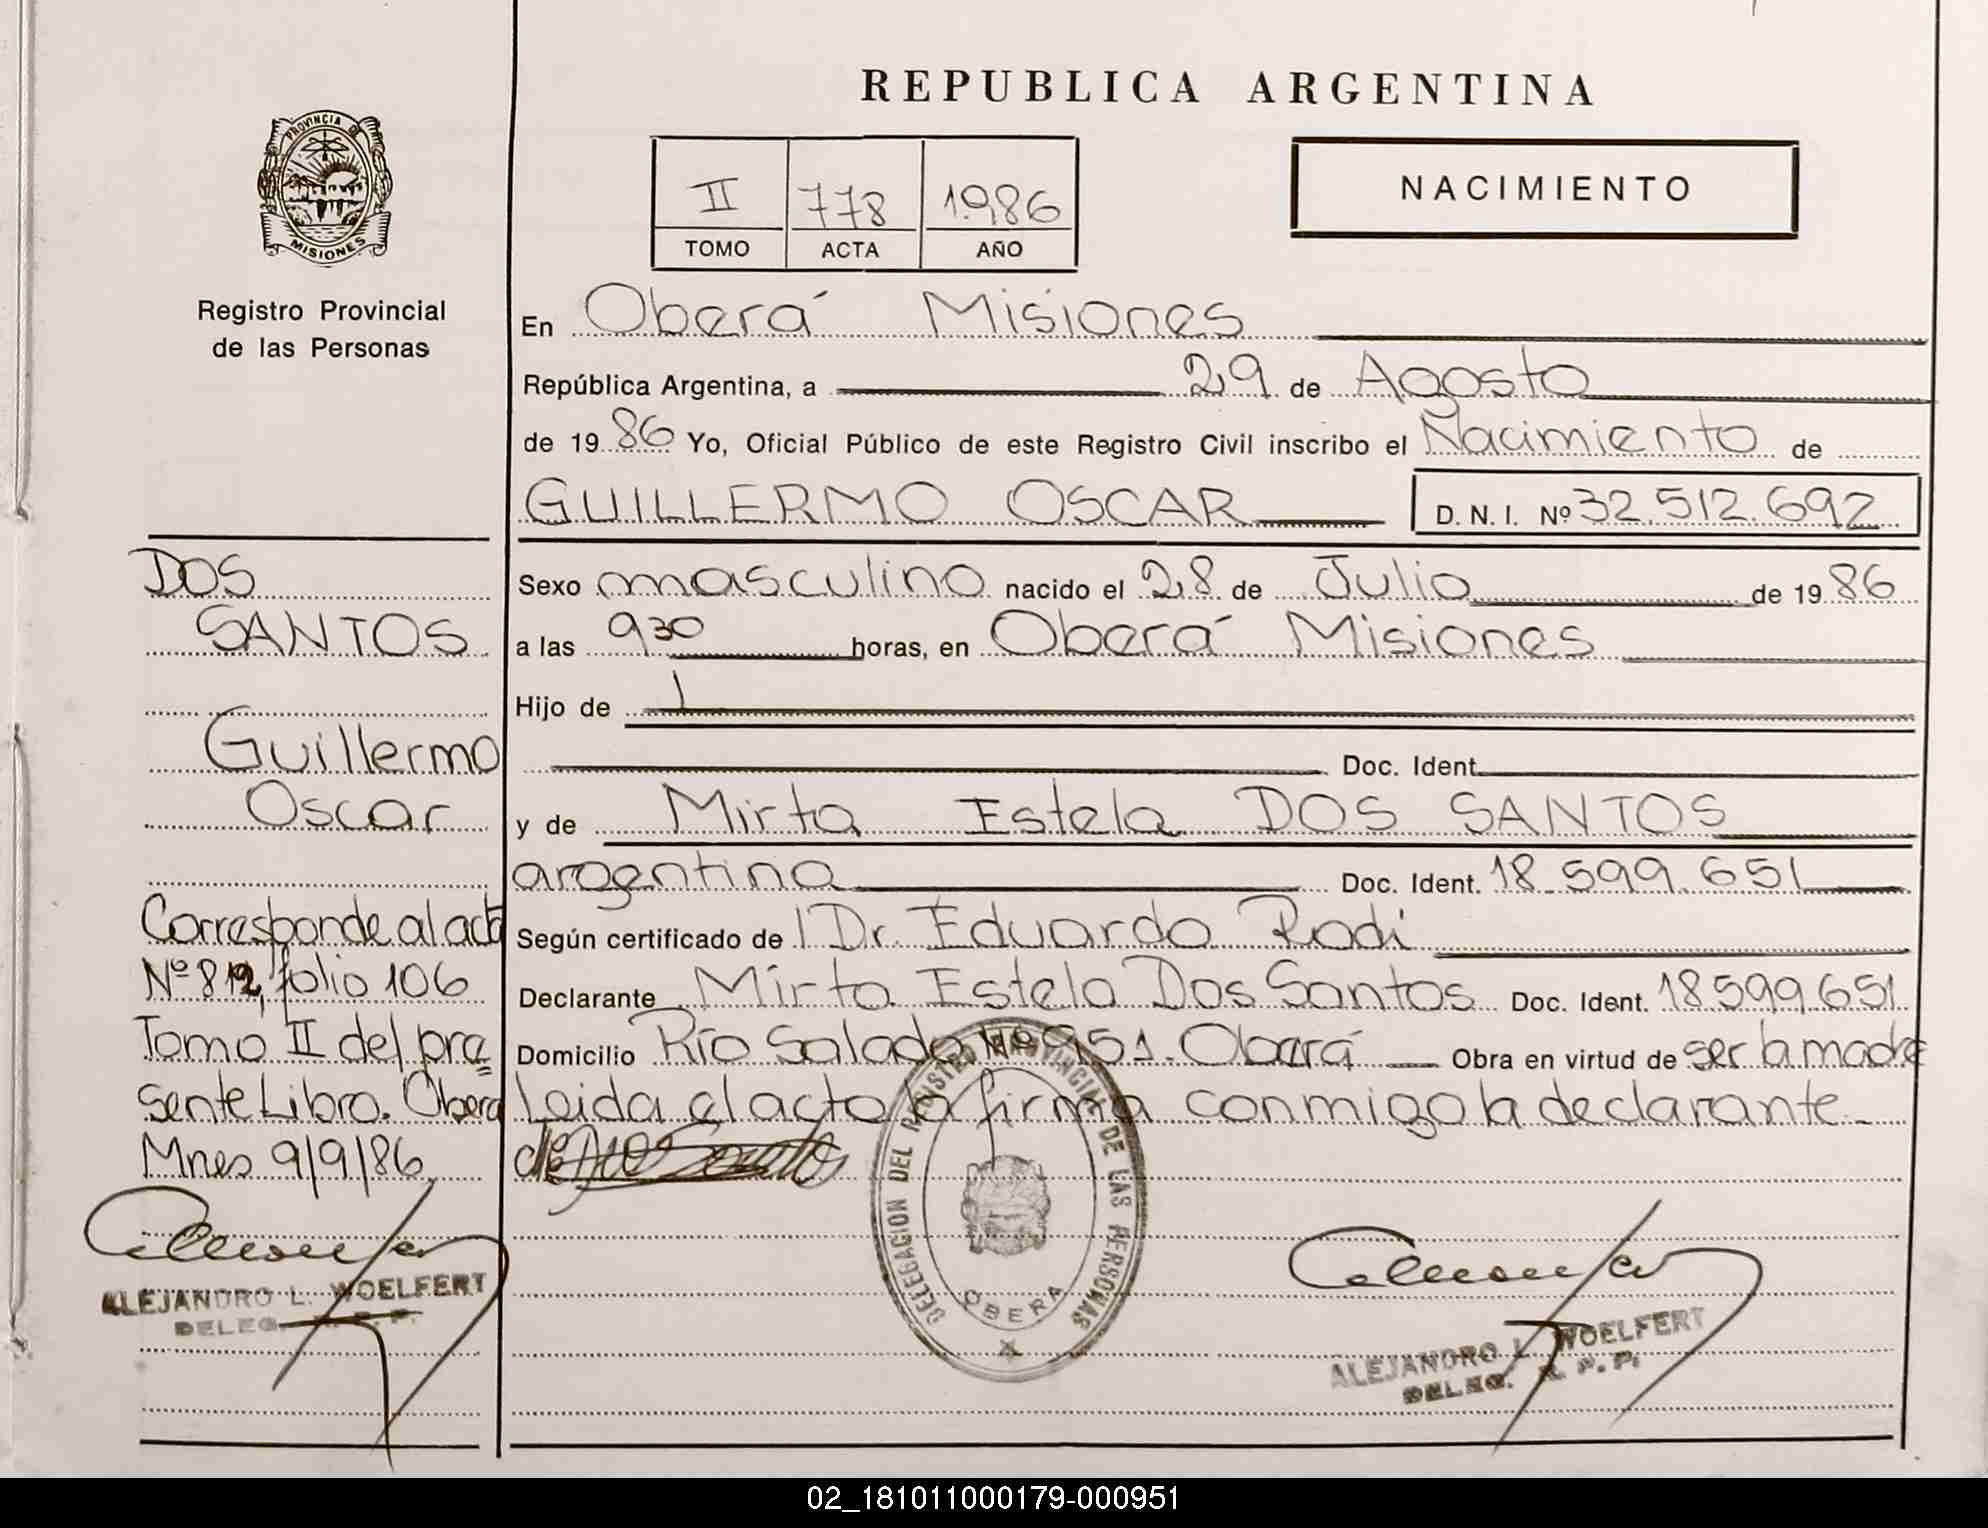 REPUBLICA ARGENTINA
PROVINCIA DE
MISIONES
Registro Provincial
de las Personas
II 778 1986
TOMO ACTA AÑO
NACIMIENTO
En Oberá Misiones
República Argentina, a 29 de Agosto
de 19 86 Yo, Oficial Público de este Registro Civil inscribo el Nacimiento de
GUILLERMO OSCAR D. N. I. Nº 32.512.692
Sexo masculino nacido el 28 de Julio de 19 86
a las 9 30 horas, en Oberá Misiones
Hijo de
Doc. Ident.
y de Mirta Estela DOS SANTOS
argentina Doc. Ident. 18.599.651
Según certificado de Dr. Eduardo Rodi
Declarante Mirta Estela Dos Santos Doc. Ident. 18599651
Domicilio Río Salado Nº 951. Oberá Obra en virtud de ser la madre
Leida el acto la firma conmigo la declarante
DOS
SANTOS
Guillermo
Oscar
Corresponde al acta
Nº 812, folio 106
Tomo II del pre
sente Libro. Oberá
Mnes 9/9/86
ALEJANDRO L. WOELFERT
DELEG. R. P. P.
DELEGACION DEL REGISTRO PROVINCIAL DE LAS PERSONAS
OBERA
ALEJANDRO L. WOELFERT
DELEG. R. P. P.
02_181011000179-000951